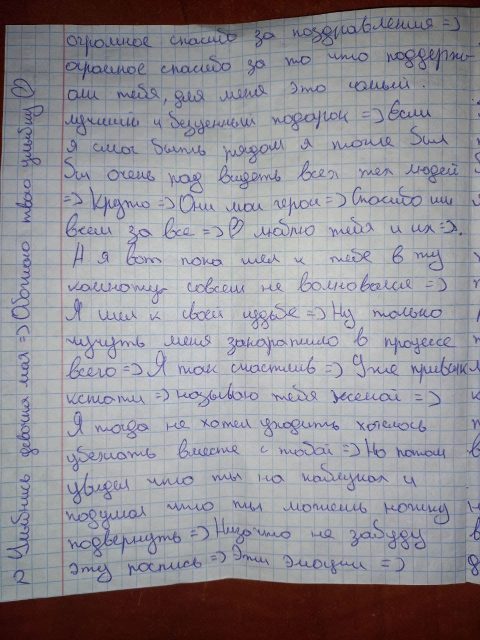 огромное спасибо за поздравления =)
огромное спасибо за то что поддерж-
али тебя, для меня это самый
лучший и бесценный подарок =) Если
я смог быть рядом я тоже был
бы очень рад видеть всех тех людей
=) Круто =) Они мои герои =) Спасибо им
всем за все =) ♡ люблю тебя и их =).
А я вот пока шел к тебе в ту
комнату совсем не волновался =)
Я шел к своей судьбе =) Ну только
чучуть меня заколотило в процессе
всего =) Я так счастлив =) Уже привык
кстати =) называю тебя женой =)
Я тогда не хотел уходить хотелось
убежать вместе с тобой =) Но потом
увидел что ты на каблуках и
подумал что ты можешь ножку
подвернуть =) Низачто не забуду
эту роспись =) Эти эмоции =)
Улыбнись девочка моя =) Обожаю твою улыбку ♡